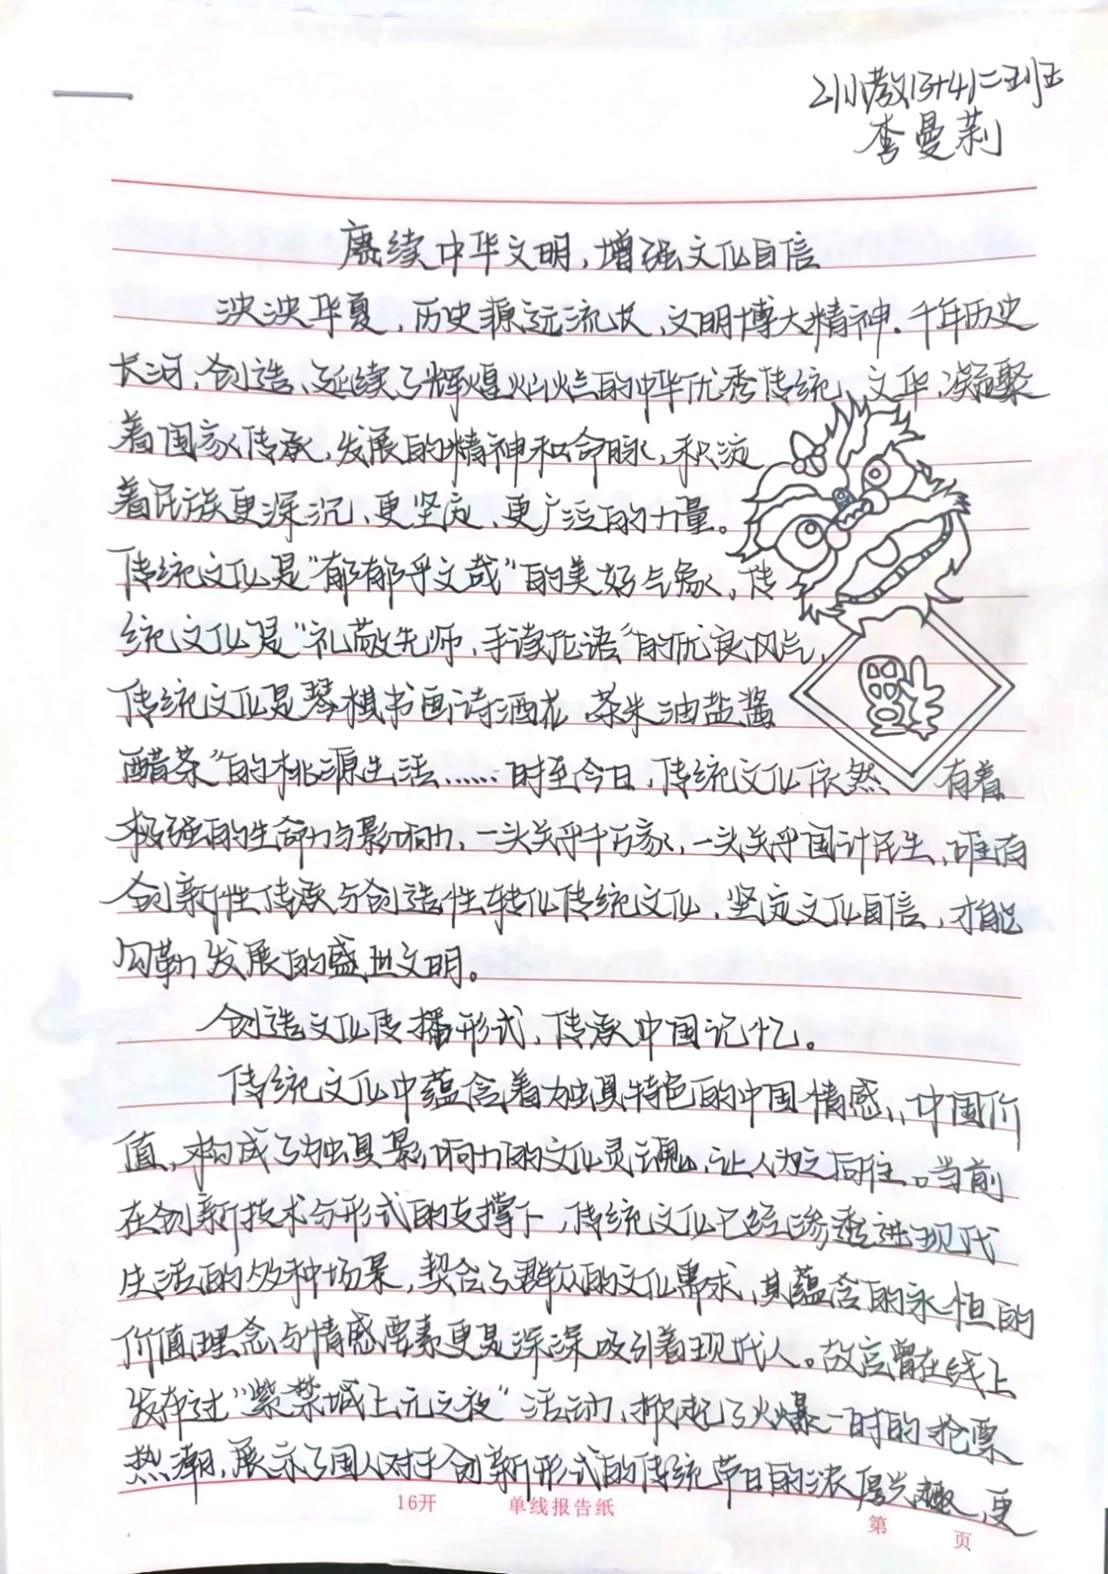 21小教(3+4)二班
李曼莉
赓续中华文明,增强文化自信
泱泱华夏,历史源远流长,文明博大精神.千年历史
长河,创造、延续了辉煌灿烂的中华优秀传统文华,凝聚
着国家传承,发展的精神和命脉,积淀
着民族更深沉、更坚定、更广泛的力量。
传统文化是"郁郁乎文哉"的美好气象,传
统文化是"礼敬先师,手读论语"的优良风气,
传统文化是琴棋书画诗酒花 茶米油盐酱
醋茶"的桃源生活……时至今日,传统文化依然 有着
极强的生命力与影响力,一头关乎千万家,一头关乎国计民生,唯有
创新性传承与创造性转化传统文化,坚定文化自信,才能
勾勒发展的盛世文明。
创造文化传播形式,传承中国记忆。
传统文化中蕴含着独具特色的中国情感、中国价
值,构成了独具影响力的文化灵魂,让人为之向往。当前
在创新技术与形式的支撑下,传统文化已经渗透进现代
生活的多种场景,契合了群众的文化需求,其蕴含的永恒的
价值理念与情感要素更是深深吸引着现代人。故宫曾在线上
发布过"紫禁城上元之夜"活动,掀起了火爆一时的抢票
热潮,展示了国人对于创新形式的传统节日的浓厚兴趣,更
16开 单线报告纸
第 页